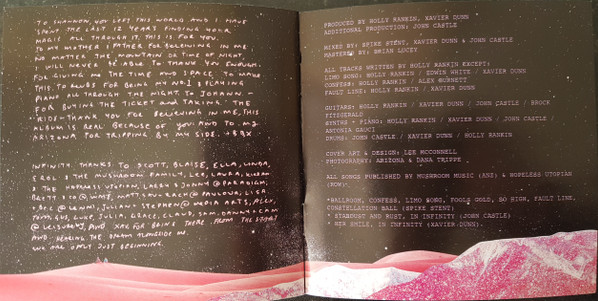 TO SHANNON, YOU LEFT THIS WORLD AND I HAVE
SPENT THE LAST 12 YEARS FINDING YOUR
MAGIC ALL THROUGH IT. THIS IS FOR YOU.
TO MY MOTHER & FATHER FOR BELIEVING IN ME
NO MATTER THE MOUNTAIN OR TIME OF NIGHT
I WILL NEVER BE ABLE TO THANK YOU ENOUGH.
FOR GIVING ME THE TIME AND SPACE TO MAKE
THIS. TO FOR BEING MY NO. 1 & PLAYING
PIANO ALL THROUGH THE NIGHT. TO JOHANN-
FOR BUYING THE TICKET AND TAKING THE
RIDE- THANK YOU FOR BELIEVING IN ME, THIS
ALBUM IS REAL BECAUSE OF YOU AND TO MS
ARIZONA FOR TRIPPING BY MY SIDE.
INFINITY THANKS TO SCOTT, BLAISE, ELLA, LINDA,
& THE MUSHROOM FAMILY, LEO, LAURA,
& THE HOPELESS UTOPIAN, LARRY & JONNY @ PARADIGM,
BRETT MATT @ PAVLOVA, LISA
@ MEDIA ARTS, ALEX,
LUKE, JULIA, GRACE, CLAUD, SAM, DANNY & CAM
@ LEISURELY, AND XAV FOR BEING THERE FROM THE START
AND THE DREAM ALONGSIDE ME.
WE ARE ONLY JUST BEGINNING.
PRODUCED BY HOLLY RANKIN, XAVIER DUNN
ADDITIONAL PRODUCTION: JOHN CASTLE
MIXED BY: SPIKE STENT, XAVIER DUNN & JOHN CASTLE
MASTERED BY: BRIAN LUCEY
ALL TRACKS WRITTEN BY HOLLY RANKIN EXCEPT:
LIMO SONG: HOLLY RANKIN / EDWIN WHITE / XAVIER DUNN
CONFESS: HOLLY RANKIN / ALEX BURNETT
FAULT LINE: HOLLY RANKIN / XAVIER DUNN
GUITARS: HOLLY RANKIN / XAVIER DUNN / JOHN CASTLE / BROCK
FITZGERALD
SYNTHS + PIANO: HOLLY RANKIN / XAVIER DUNN / JOHN CASTLE /
ANTONIA GAUCI
DRUMS: JOHN CASTLE / XAVIER DUNN / HOLLY RANKIN
COVER ART & DESIGN: LEE MCCONNELL
PHOTOGRAPHY: ARIZONA & DANA TRIPPE
ALL SONGS PUBLISHED BY MUSHROOM MUSIC (ANZ) & HOPELESS UTOPIAN
(ROW)
*BALLROOM, CONFESS, LIMO SONG, FOOLS GOLD, SO HIGH, FAULT LINE,
CONSTELLATION BALL (SPIKE STENT)
* STARDUST AND RUST, IN INFINITY (JOHN CASTLE)
* HER SMILE, IN INFINITY (XAVIER DUNN).